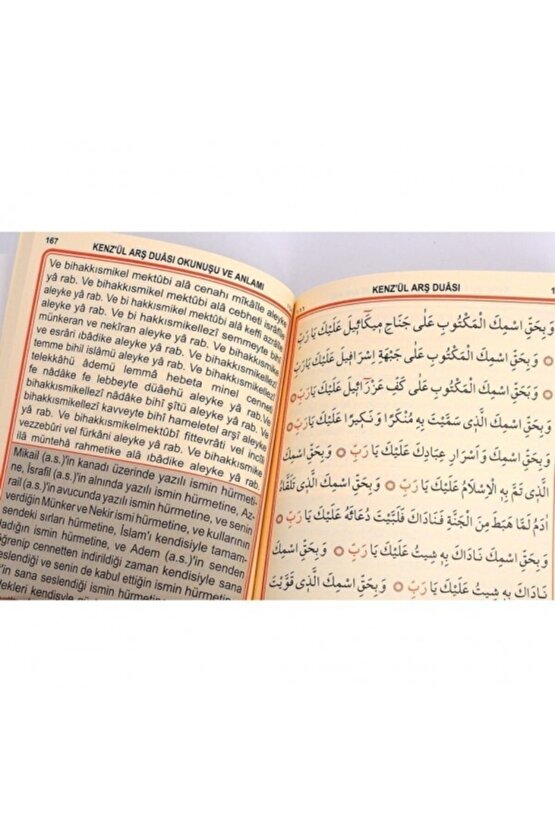 167
KENZ'ÜL ARŞ DUÂSI OKUNUŞU VE ANLAMI
Ve bihakkısmikel mektûbi alâ cenahı mîkâîlle aleyke
yâ rab. Ve bihakkısmikel mektûbi alâ cebheti isrâfîle
aleyke yâ rab. Ve bi hakkısmikel mektûbi alâ keffi azrâîle
aleyke yâ rab. Ve bi hakkısmikellezî semmeyte bihî
münkeran ve nekîran aleyke yâ rab. Ve bihakkısmike
ve esrâri ıbâdike aleyke yâ rab. Ve bihakkısmikellezî
temme bihil islâmü aleyke yâ rab. Ve bihakkısmikellezî
telekkâhü âdemü lemmâ hebeta minel cenneti
fe nâdâke fe lebbeyte düâehü aleyke yâ rab. Ve
bihakkısmikellezî nâdâke bihî şîtü aleyke yâ rab. Ve
bihakkısmikellezî kavveyte bihî hameletel arşi aleyke
yâ rab. Ve bihakkısmikelmektûbî fittevrâti vel incîli
vezzebûri vel fürkâni aleyke yâ rab. Ve bihakkısmike
ilâ müntehâ rahmetike alâ ıbâdike aleyke yâ rab.
Mikail (a.s.)'in kanadı üzerinde yazılı ismin hürmeti-
ne, İsrafil (a.s.)'in alnında yazılı ismin hürmetine, Az-
rail (a.s.)'in avucunda yazılı ismin hürmetine, ve senin
verdiğin Münker ve Nekir ismi hürmetine, ve kullarının
sendeki sırları hürmetine, İslam'ı kendisiyle tamam-
ladığın ismin hürmetine, ve Adem (a.s.)'in senden
öğrenip cennetten indirildiği zaman kendisiyle sana
seslendiği ve senin de kabul ettiğin ismin hürmetine,
'in sana seslendiği ismin hürmetine,
lekleri kendisiyle
KENZ'ÜL ARŞ DUÂSI
وَ بِحَقِّ اسْمِكَ الْمَكْتُوبِ عَلٰى جَنَاحِ مِيكَٓائِيلَ عَلَيْكَ يَا رَبِّ
وَ بِحَقِّ اسْمِكَ الْمَكْتُوبِ عَلٰى جَبْهَةِ اِسْرَافِيلَ عَلَيْكَ يَا رَبِّ
وَ بِحَقِّ اسْمِكَ الْمَكْتُوبِ عَلٰى كَفِّ عَزْرَٓائِيلَ عَلَيْكَ يَا رَبِّ
وَ بِحَقِّ اسْمِكَ الَّذِى سَمَّيْتَ بِهٖ مُنْكَرًا وَ نَكِيرًا عَلَيْكَ يَا رَبِّ
وَ بِحَقِّ اسْمِكَ وَ اَسْرَارِ عِبَادِكَ عَلَيْكَ يَا رَبِّ وَ بِحَقِّ اسْمِكَ
الَّذِى تَمَّ بِهِ الْاِسْلَامُ عَلَيْكَ يَا رَبِّ وَ بِحَقِّ اسْمِكَ الَّذِى تَلَقَّاهُ
اٰدَمُ لَمَّا هَبَطَ مِنَ الْجَنَّةِ فَنَادَاكَ فَلَبَّيْتَ دُعَائَهُ عَلَيْكَ يَا رَبِّ
وَ بِحَقِّ اسْمِكَ نَادَاكَ بِهٖ شِيتُ عَلَيْكَ يَا رَبِّ وَ بِحَقِّ اسْمِكَ
نَادَاكَ بِهٖ شِيتُ عَلَيْكَ يَا رَبِّ وَ بِحَقِّ اسْمِكَ الَّذِى قَوَّيْتَ